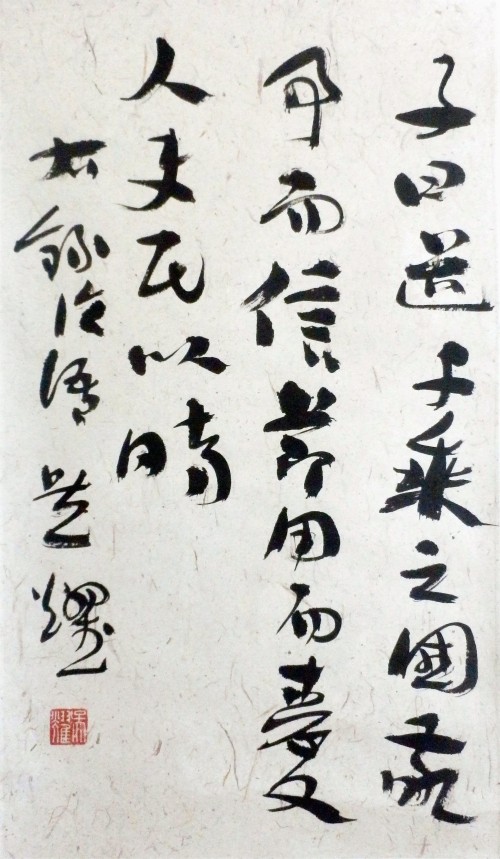 子曰道千乘之國敬
事而信節用而愛
人使民以時
右錄論語 吳耀
吳耀